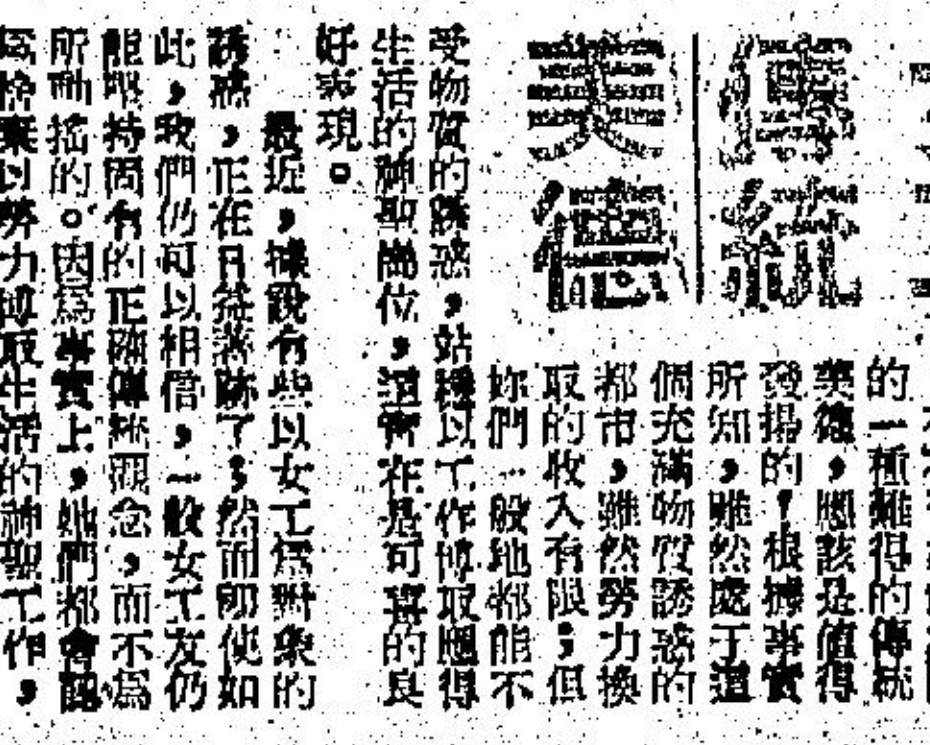 傳統
美德
的一種難得的傳統
美德,應該是值得
發揚的!根據事實
所知,雖然處于這
個充滿物質誘惑的
都市,雖然勞力換
取的收入有限;但
妳們一般地都能不
受物質的誘惑,站穩以工作博取應得
生活的神聖崗位,這實在是可喜的良
好表現。
最近,據說有些以女工爲對象的
誘惑,正在日益著跡了;然而卽使如
此,我們仍可以相信,一般女工友仍
能堅持固有的正確傳統觀念,而不爲
所動搖的。因爲事實上,她們都會認
爲捨棄以勞力博取生活的神聖工作,